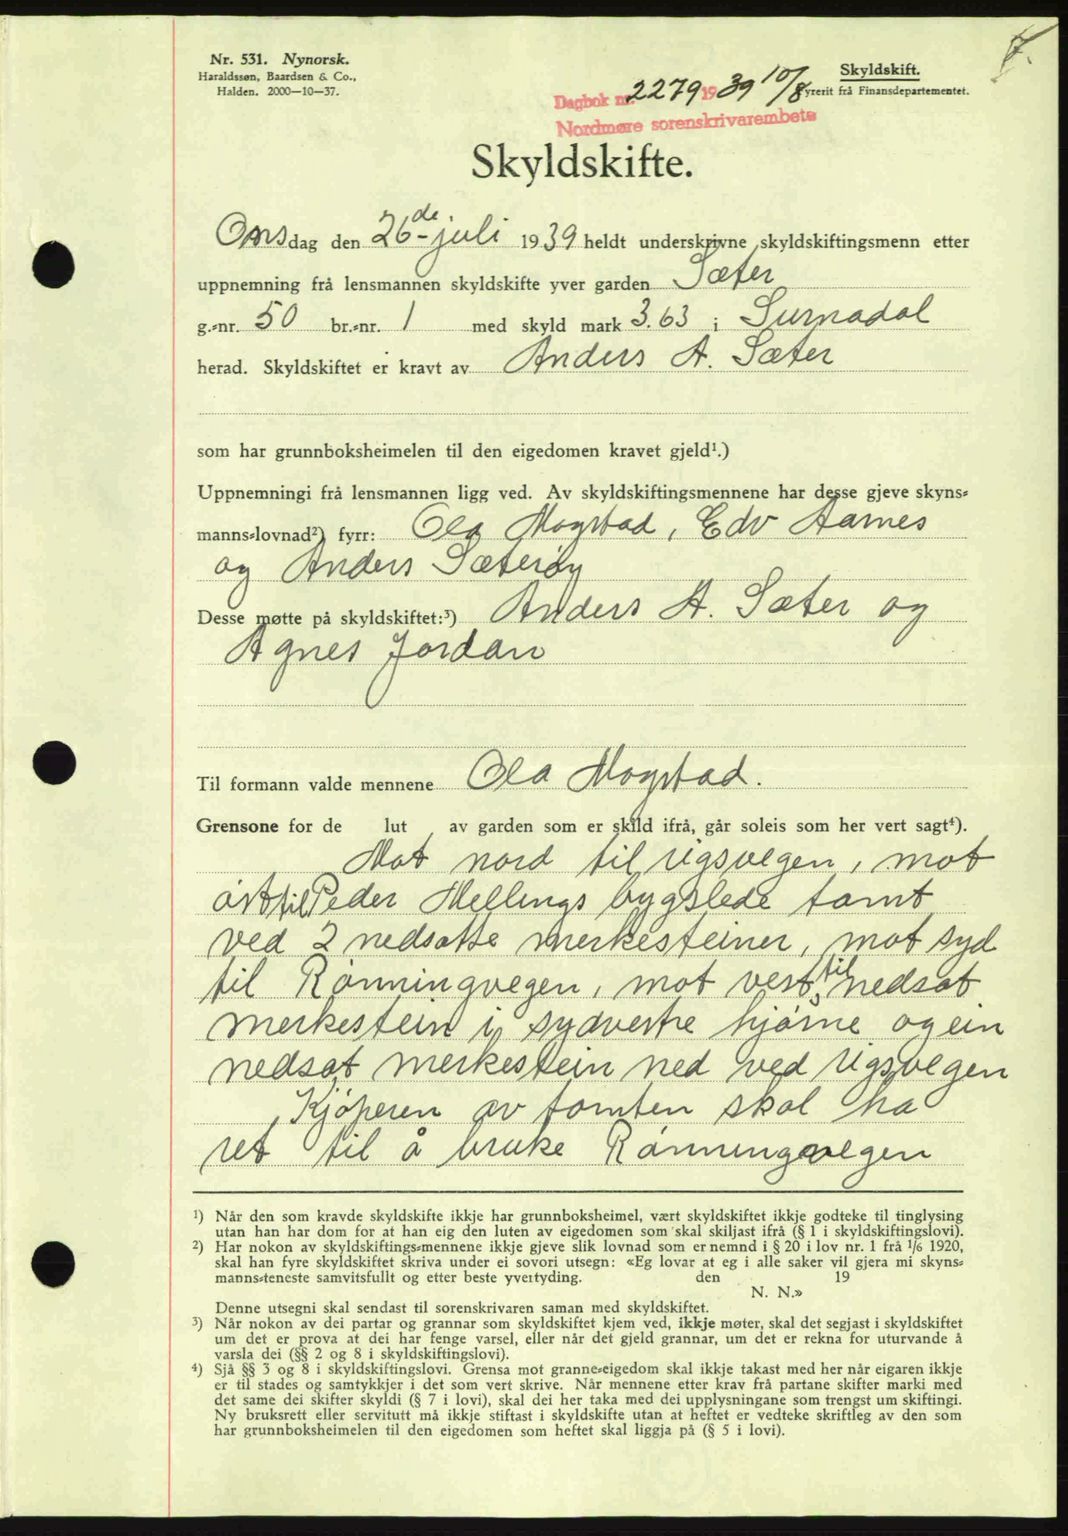 7.
Nr. 531. Nynorsk.
Haraldssøn, Baardsen & Co.,
Halden. 2000—10—37.
Skyldskift.
Fyrerit frå Finansdepartementet.
Dagbok nr. 2279 1939 10/8
Nordmøre sorenskrivarembete
Skyldskifte.
Onsdag den 26de juli 1939 heldt underskrivne skyldskiftingsmenn etter
uppnemning frå lensmannen skyldskifte yver garden Sæter
g.-nr. 50 br.-nr. 1 med skyld mark 3.63 i Surnadal
herad. Skyldskiftet er kravt av Anders A. Sæter
som har grunnboksheimelen til den eigedomen kravet gjeld¹.)
Uppnemningi frå lensmannen ligg ved. Av skyldskiftingsmennene har desse gjeve skyns-
manns-lovnad²) fyrr: Ola Mogstad, Edv Aarnes
og Anders Sæterøy
Desse møtte på skyldskiftet:³) Anders A. Sæter og
Agnes Jordan
Til formann valde mennene Ola Mogstad.
Grensone for de lut av garden som er skild ifrå, går soleis som her vert sagt⁴).
Mot nord til rigsvegen, mot
øst til Peder Mellings bygslede tomt
ved 2 nedsatte merkesteiner, mot syd
til Rønningvegen, mot vest til nedsat
merkestein i sydvestre hjørne og ein
nedsat merkestein ned ved rigsvegen
Kjøperen av tomten skal ha
ret til å bruke Rønningvegen
¹) Når den som kravde skyldskifte ikkje har grunnboksheimel, vært skyldskiftet ikkje godteke til tinglysing
utan han har dom for at han eig den luten av eigedomen som skal skiljast ifrå (§ 1 i skyldskiftingslovi).
²) Har nokon av skyldskiftings-mennene ikkje gjeve slik lovnad som er nemnd i § 20 i lov nr. 1 frå 1/6 1920,
skal han fyre skyldskiftet skriva under ei sovori utsegn: «Eg lovar at eg i alle saker vil gjera mi skyns-
manns-teneste samvitsfullt og etter beste yvertyding. den 19
N. N.»
Denne utsegni skal sendast til sorenskrivaren saman med skyldskiftet.
³) Når nokon av dei partar og grannar som skyldskiftet kjem ved, ikkje møter, skal det segjast i skyldskiftet
um det er prova at dei har fenge varsel, eller når det gjeld grannar, um det er rekna for uturvande å
varsla dei (§§ 2 og 8 i skyldskiftingslovi).
⁴) Sjå §§ 3 og 8 i skyldskiftingslovi. Grensa mot granne-eigedom skal ikkje takast med her når eigaren ikkje
er til stades og samtykkjer i det som vert skrive. Når mennene etter krav frå partane skifter marki med
det same dei skifter skyldi (§ 7 i lovi), skal dei her taka med dei upplysningane som trengst um skiftingi.
Ny bruksrett eller servitutt må ikkje stiftast i skyldskifte utan at heftet er vedteke skriftleg av den som
har grunnboksheimelen til den eigedomen som heftet skal liggja på (§ 5 i lovi).